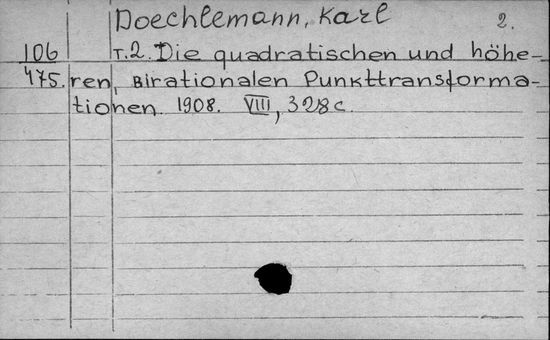 Doechlemann, Karl 2.
106 т.2. Die quadratischen und höhe-
475. ren, birationalen Punkttransforma-
tionen. 1908. VIII, 328 c.